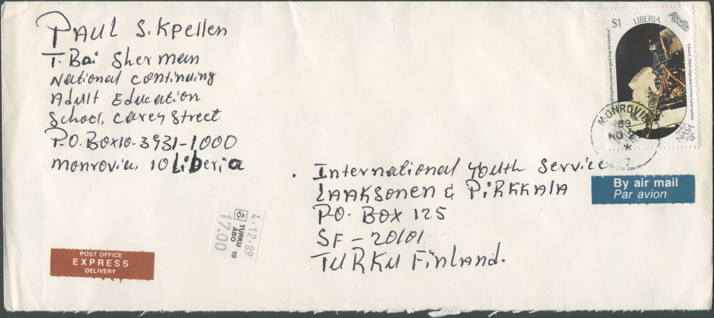 PAUL S. Kpellen
T. Bai Sherman
National Continuing
Adult Education
School, Carey Street
P.O. Box 10-3931-1000
Monrovia, 10 Liberia
$1 LIBERIA
MONROVIA
89
International Youth Service
LAAKSONEN & PiRKKALA
P.O. BOX 125
SF-20101
TURKU FinLand.
By air mail
Par avion
4.12.89
TURKU 10
ÅBO
17.00
POST OFFICE
EXPRESS
DELIVERY